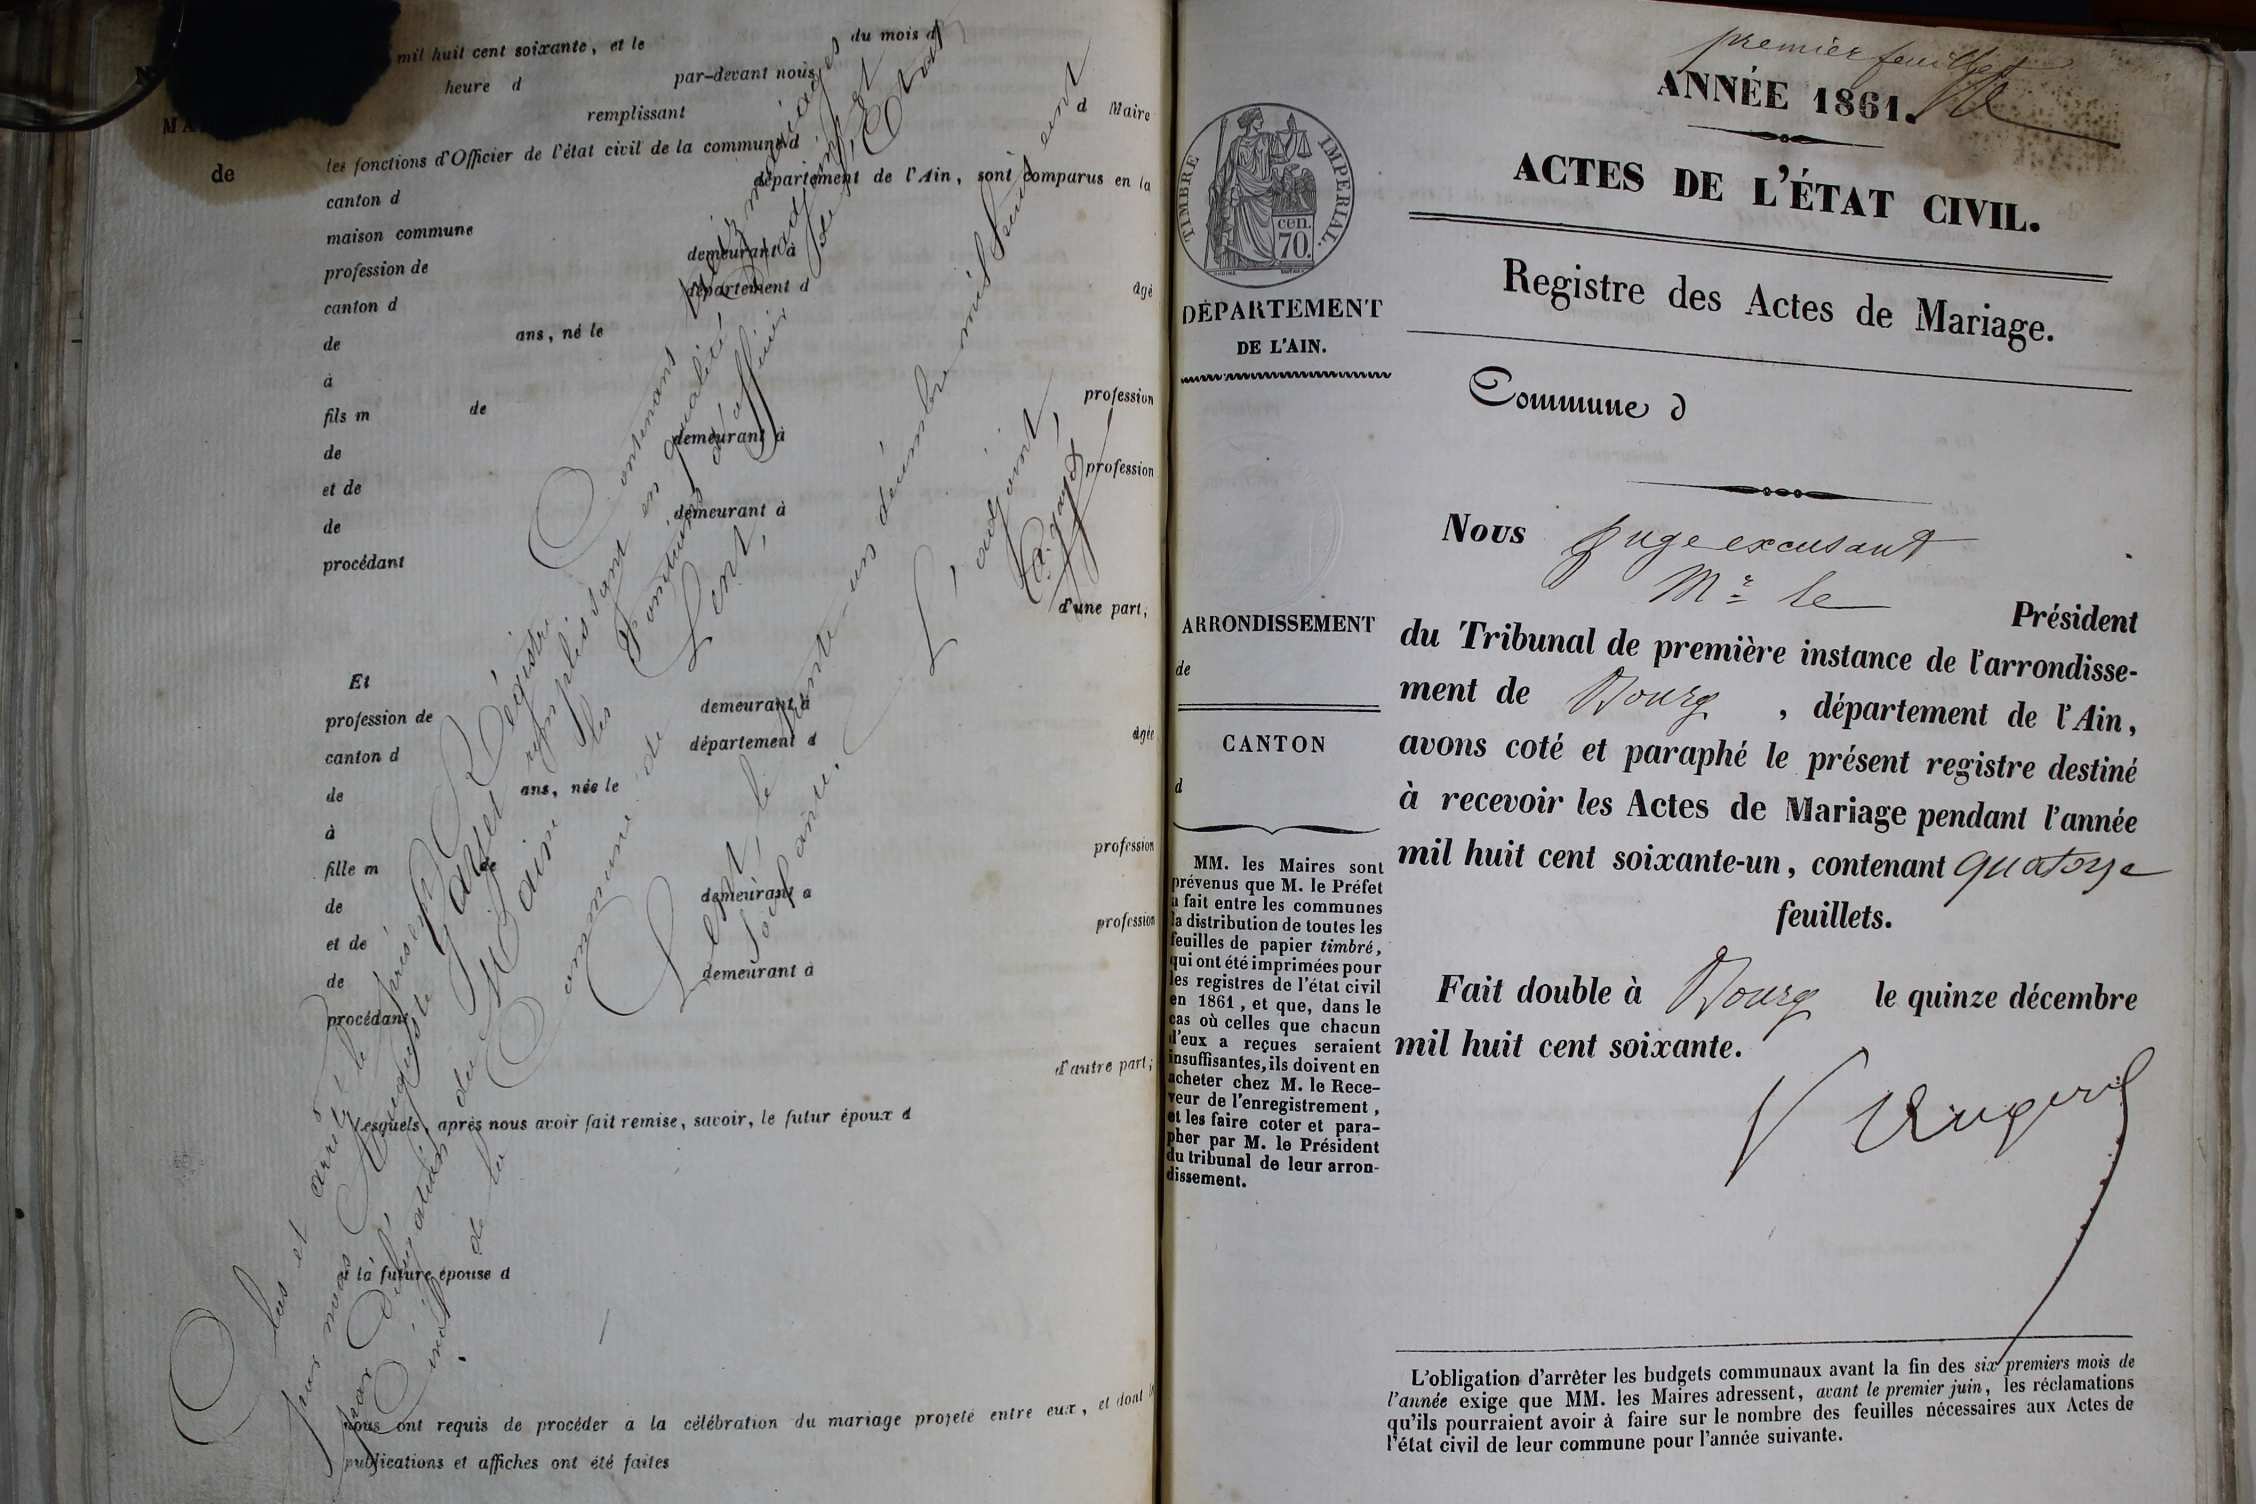 mil huit cent soixante, et le
du mois d
heure d
par-devant nous
remplissant
d Maire
de
les fonctions d'Officier de l'état civil de la commune d
canton d
département de l'Ain, sont comparus en la
maison commune
profession de
demeurant à
canton d
département d
agé
de
ans, né le
à
fils m
de
profession
de
demeurant à
et de
profession
de
demeurant à
procédant
d'une part;
Et
profession de
demeurant à
canton d
département d
agée
de
ans, née le
à
fille m
de
profession
de
demeurant a
et de
profession
de
demeurant à
procédant
d'autre part;
Lesquels, après nous avoir fait remise, savoir, le futur époux d
et la future épouse d
nous ont requis de procéder a la célébration du mariage projeté entre eux, et dont
publications et affiches ont été faites
Clos et arrêté le présent Régistre Contenans mariages
par nous Auguste remplissant en qualité d'adjoint et
par délégation du Maire les fonctions d'officier de l'Etat
Civil de la Commune de Lent,
Lent, le trente-un décembre mil huit cent
soixante.
L'adjoint,
premier feuillet
ANNÉE 1861.
ACTES DE L'ÉTAT CIVIL.
Registre des Actes de Mariage.
Commune d
TIMBRE IMPÉRIAL.
cen.
70.
DÉPARTEMENT
DE L'AIN.
ARRONDISSEMENT
de
CANTON
d
MM. les Maires sont
prévenus que M. le Préfet
a fait entre les communes
la distribution de toutes les
feuilles de papier timbré,
qui ont été imprimées pour
les registres de l'état civil
en 1861, et que, dans le
cas où celles que chacun
d'eux a reçues seraient
insuffisantes, ils doivent en
acheter chez M. le Rece-
veur de l'enregistrement,
et les faire coter et para-
pher par M. le Président
du tribunal de leur arron-
dissement.
Nous juge excusant
Mr le
Président
du Tribunal de première instance de l'arrondisse-
ment de Bourg, département de l'Ain,
avons coté et paraphé le présent registre destiné
à recevoir les Actes de Mariage pendant l'année
mil huit cent soixante-un, contenant quatorze
feuillets.
Fait double à Bourg le quinze décembre
mil huit cent soixante.
L'obligation d'arrêter les budgets communaux avant la fin des six premiers mois de
l'année exige que MM. les Maires adressent, avant le premier juin, les réclamations
qu'ils pourraient avoir à faire sur le nombre des feuilles nécessaires aux Actes de
l'état civil de leur commune pour l'année suivante.